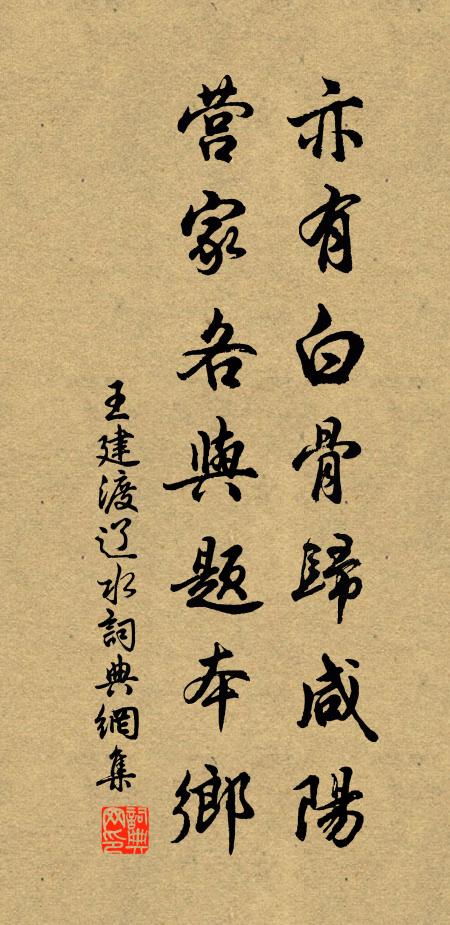 亦有白骨歸咸陽
营家各與题本鄉
王建渡辽水詞典網集
詞典网印